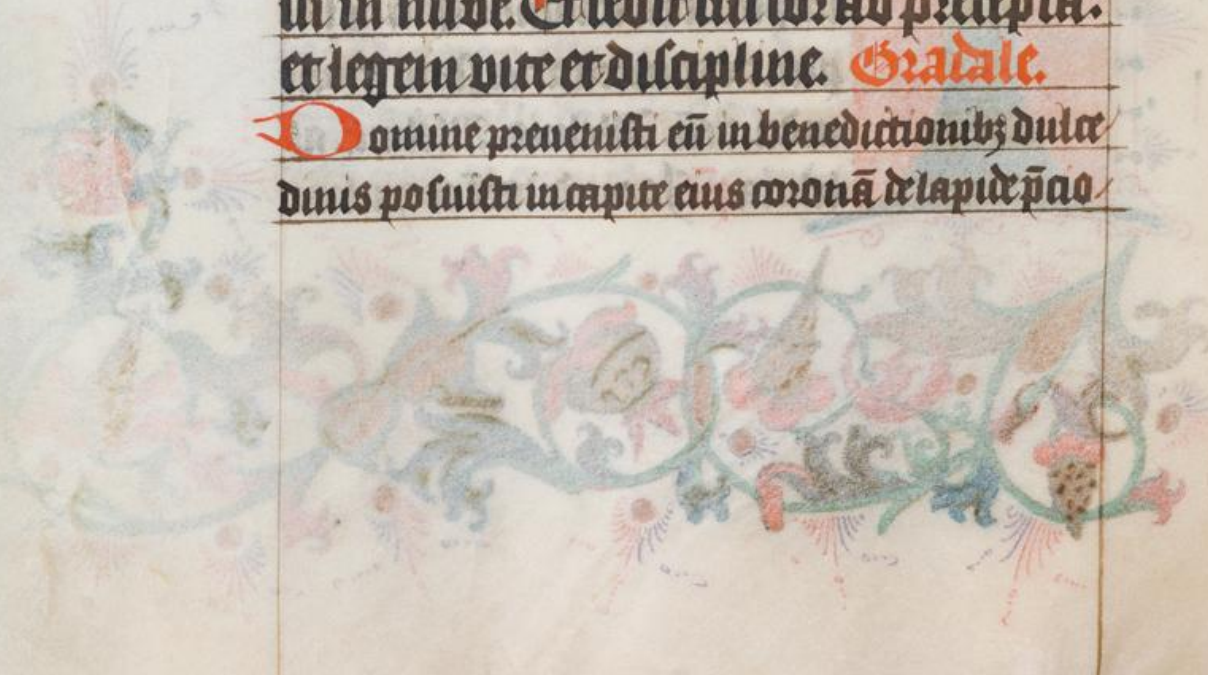 et legem vite et discipline. Gradale.
Domine prevenisti eū in benedictionibꝫ dulce
dinis posuisti in capite eius coronā de lapide p̄cio